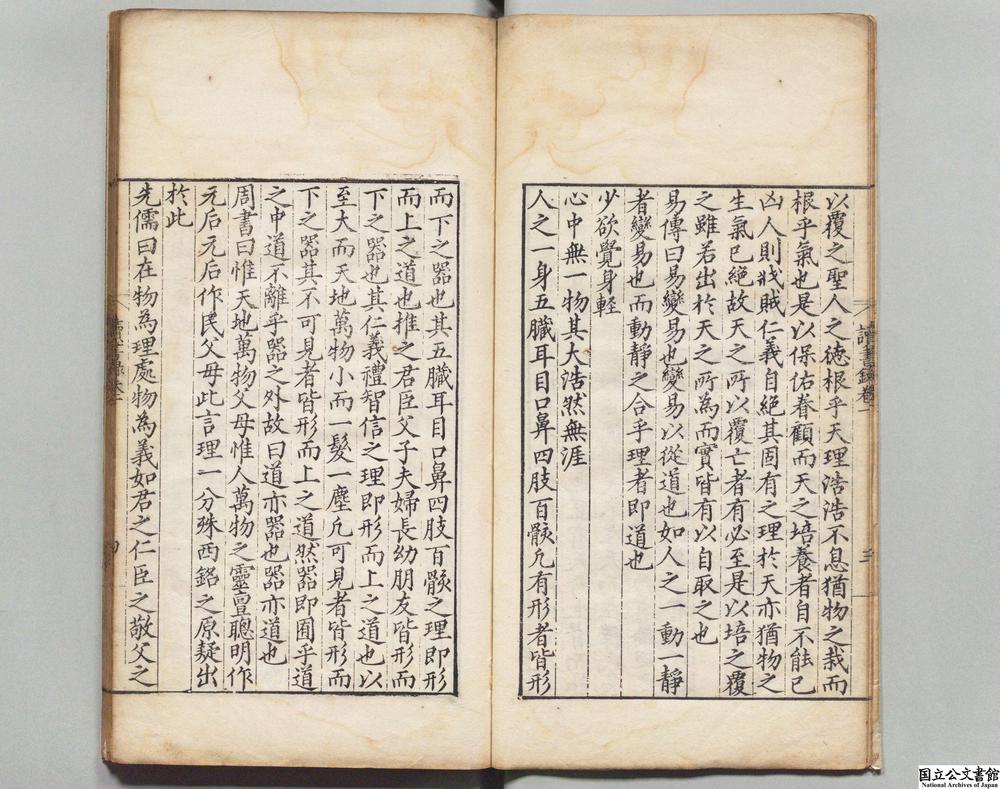 以覆之聖人之德根乎天理浩浩不息猶物之栽而
根乎氣也是以保佑眷顧而天之培養者自不能已
凶人則戕賊仁義自絕其固有之理於天亦猶物之
生氣已絕故天之所以覆亡者有必至是以培之覆
之雖若出於天之所為而實皆有以自取之也
易傳曰易變易也變易以從道也如人之一動一靜
者變易也而動靜之合乎理者即道也
少欲覺身輕
心中無一物其大浩然無涯
人之一身五臟耳目口鼻四肢百骸凢有形者皆形
讀書錄卷一
三
而下之器也其五臟耳目口鼻四肢百骸之理即形
而上之道也推之君臣父子夫婦長幼朋友皆形而
下之器也其仁義禮智信之理即形而上之道也以
至大而天地萬物小而一髮一塵凢可見者皆形而
下之器其不可見者皆形而上之道然器即囿乎道
之中道不離乎器之外故曰道亦器也器亦道也
周書曰惟天地萬物父母惟人萬物之靈亶聰明作
元后元后作民父母此言理一分殊西銘之原疑出
於此
先儒曰在物為理處物為義如君之仁臣之敬父之
讀書錄卷一
国立公文書館
National Archives of Japan